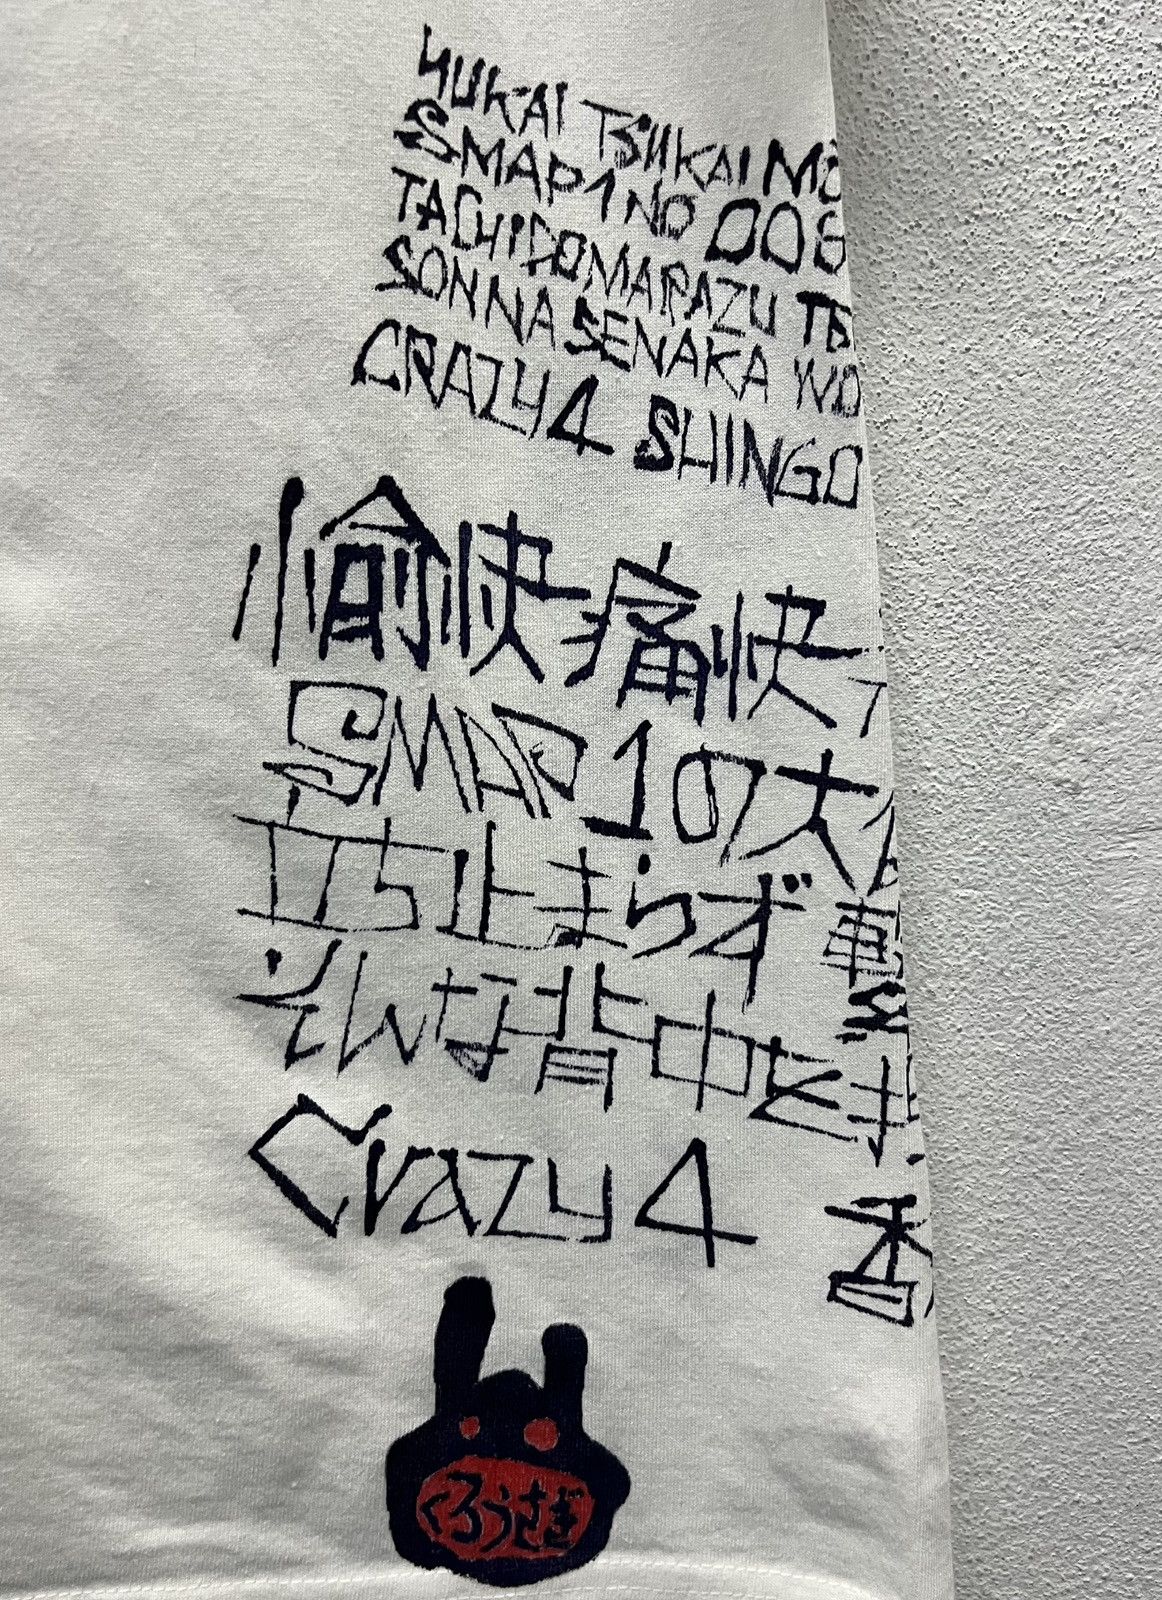 YUKAI TSUKAI MO
SMAP 1 NO OO
TACHIDOMARAZU
SONNA SENAKA WO
CRAZY 4 SHINGO
愉快痛快
SMAP 1の大
立ち止まらず
そんな背中を
Crazy 4 香
くろうさぎ